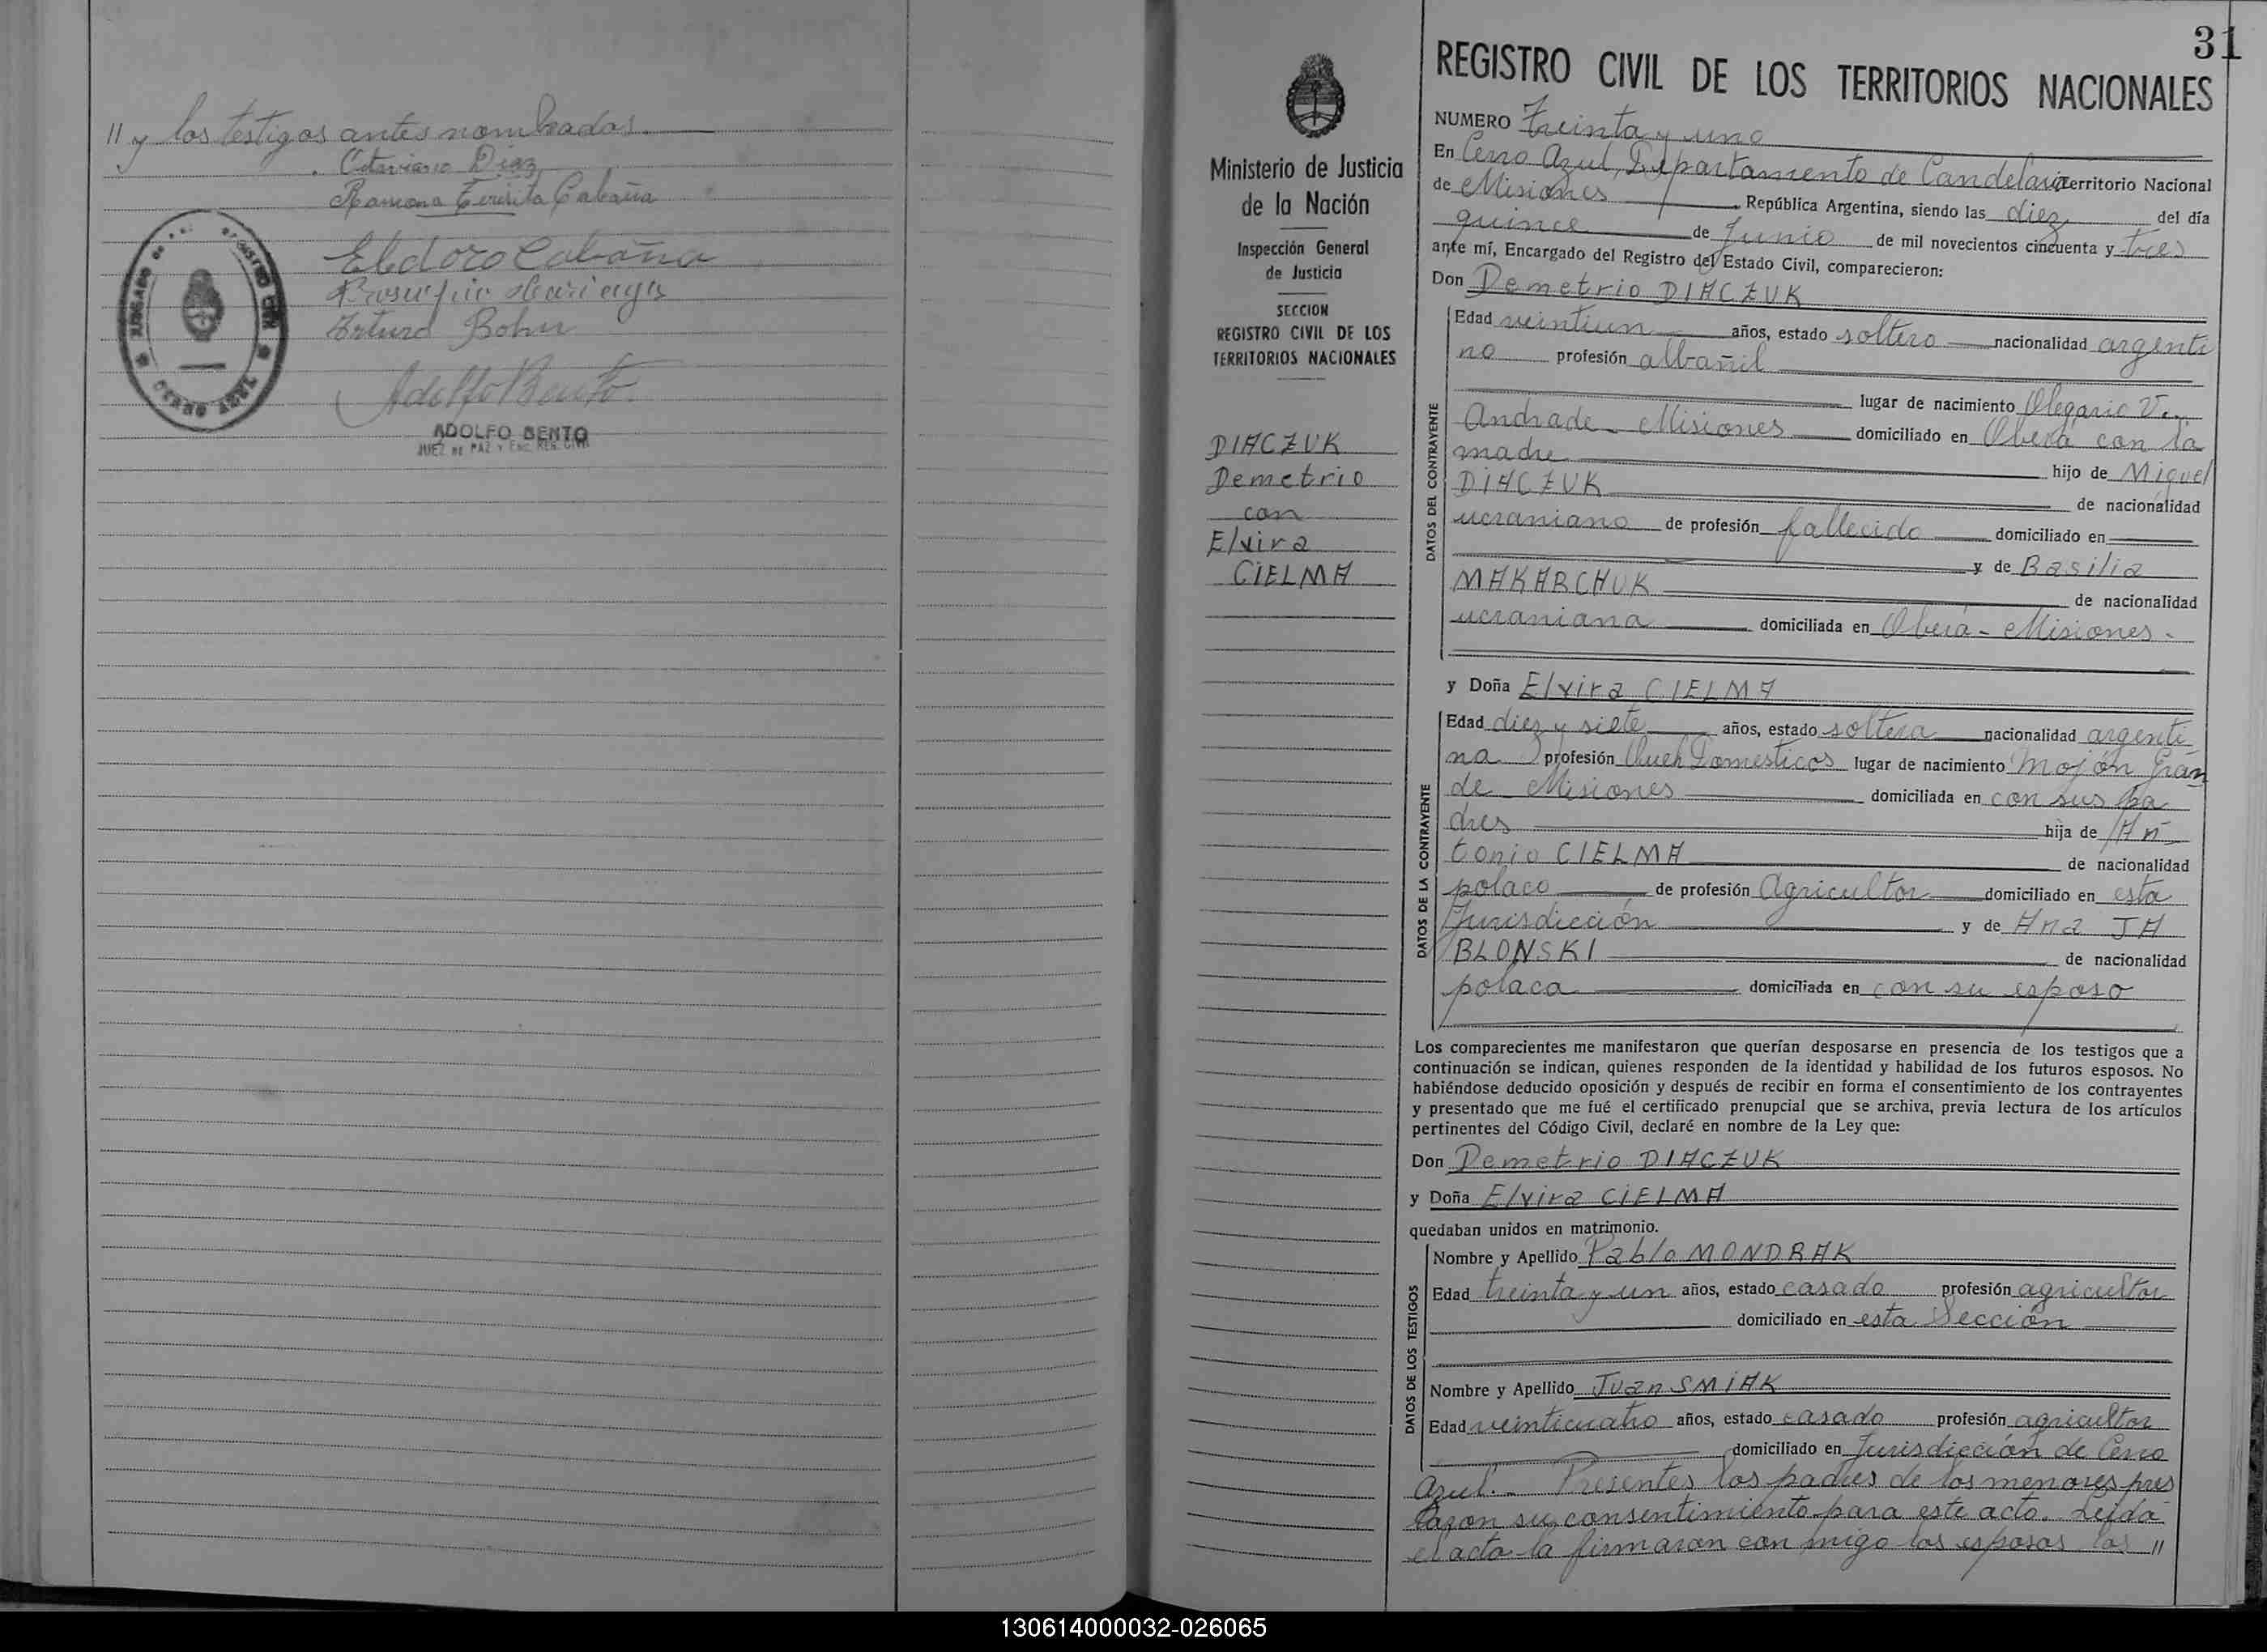 // y los testigos antes nombrados.
Octaviano Diaz
Ramona Teresita Cabaña
Eledoro Cabaña
Arturo Bohn
Adolfo Bento
ADOLFO BENTO
JUEZ DE PAZ Y ENC. REG. CIVIL
JUZGADO DE PAZ
REGISTRO CIVIL
CERRO AZUL
31
Ministerio de Justicia
de la Nación
Inspección General
de Justicia
SECCION
REGISTRO CIVIL DE LOS
TERRITORIOS NACIONALES
DIACZUK
Demetrio
con
Elvira
CIELMA
REGISTRO CIVIL DE LOS TERRITORIOS NACIONALES
NUMERO Treinta y uno
En Cerro Azul, Departamento de Candelaria Territorio Nacional
de Misiones República Argentina, siendo las diez del día
quince de Junio de mil novecientos cincuenta y tres
ante mí, Encargado del Registro del Estado Civil, comparecieron:
Don Demetrio DIACZUK
DATOS DEL CONTRAYENTE
Edad veintiun años, estado soltero nacionalidad argenti
no profesión albañil
lugar de nacimiento Olegario V.
Andrade - Misiones domiciliado en Oberá con la
madre hijo de Miguel
DIACZUK de nacionalidad
ucraniano de profesión fallecido domiciliado en
y de Basilia
MAKARCHUK de nacionalidad
ucraniana domiciliada en Oberá - Misiones -
y Doña Elvira CIELMA
DATOS DE LA CONTRAYENTE
Edad diez y siete años, estado soltera nacionalidad argenti-
na profesión Queh Domesticos lugar de nacimiento Mojón Gran
de Misiones domiciliada en con sus pa
dres hija de An
tonio CIELMA de nacionalidad
polaco de profesión Agricultor domiciliado en esta
Jurisdicción y de Ana JA
BLONSKI de nacionalidad
polaca domiciliada en con su esposo
Los comparecientes me manifestaron que querían desposarse en presencia de los testigos que a
continuación se indican, quienes responden de la identidad y habilidad de los futuros esposos. No
habiéndose deducido oposición y después de recibir en forma el consentimiento de los contrayentes
y presentado que me fué el certificado prenupcial que se archiva, previa lectura de los artículos
pertinentes del Código Civil, declaré en nombre de la Ley que:
Don Demetrio DIACZUK
y Doña Elvira CIELMA
quedaban unidos en matrimonio.
DATOS DE LOS TESTIGOS
Nombre y Apellido Pablo MONDRAK
Edad treinta y un años, estado casado profesión agricultor
domiciliado en esta Sección
Nombre y Apellido Juan SMIAK
Edad veinticuatro años, estado casado profesión agricultor
domiciliado en Jurisdicción de Cerro
Azul.- Presentes los padres de los menores pres
taron su consentimiento para este acto. Leída
el acta la firmaron con migo los esposos los //
130614000032-026065